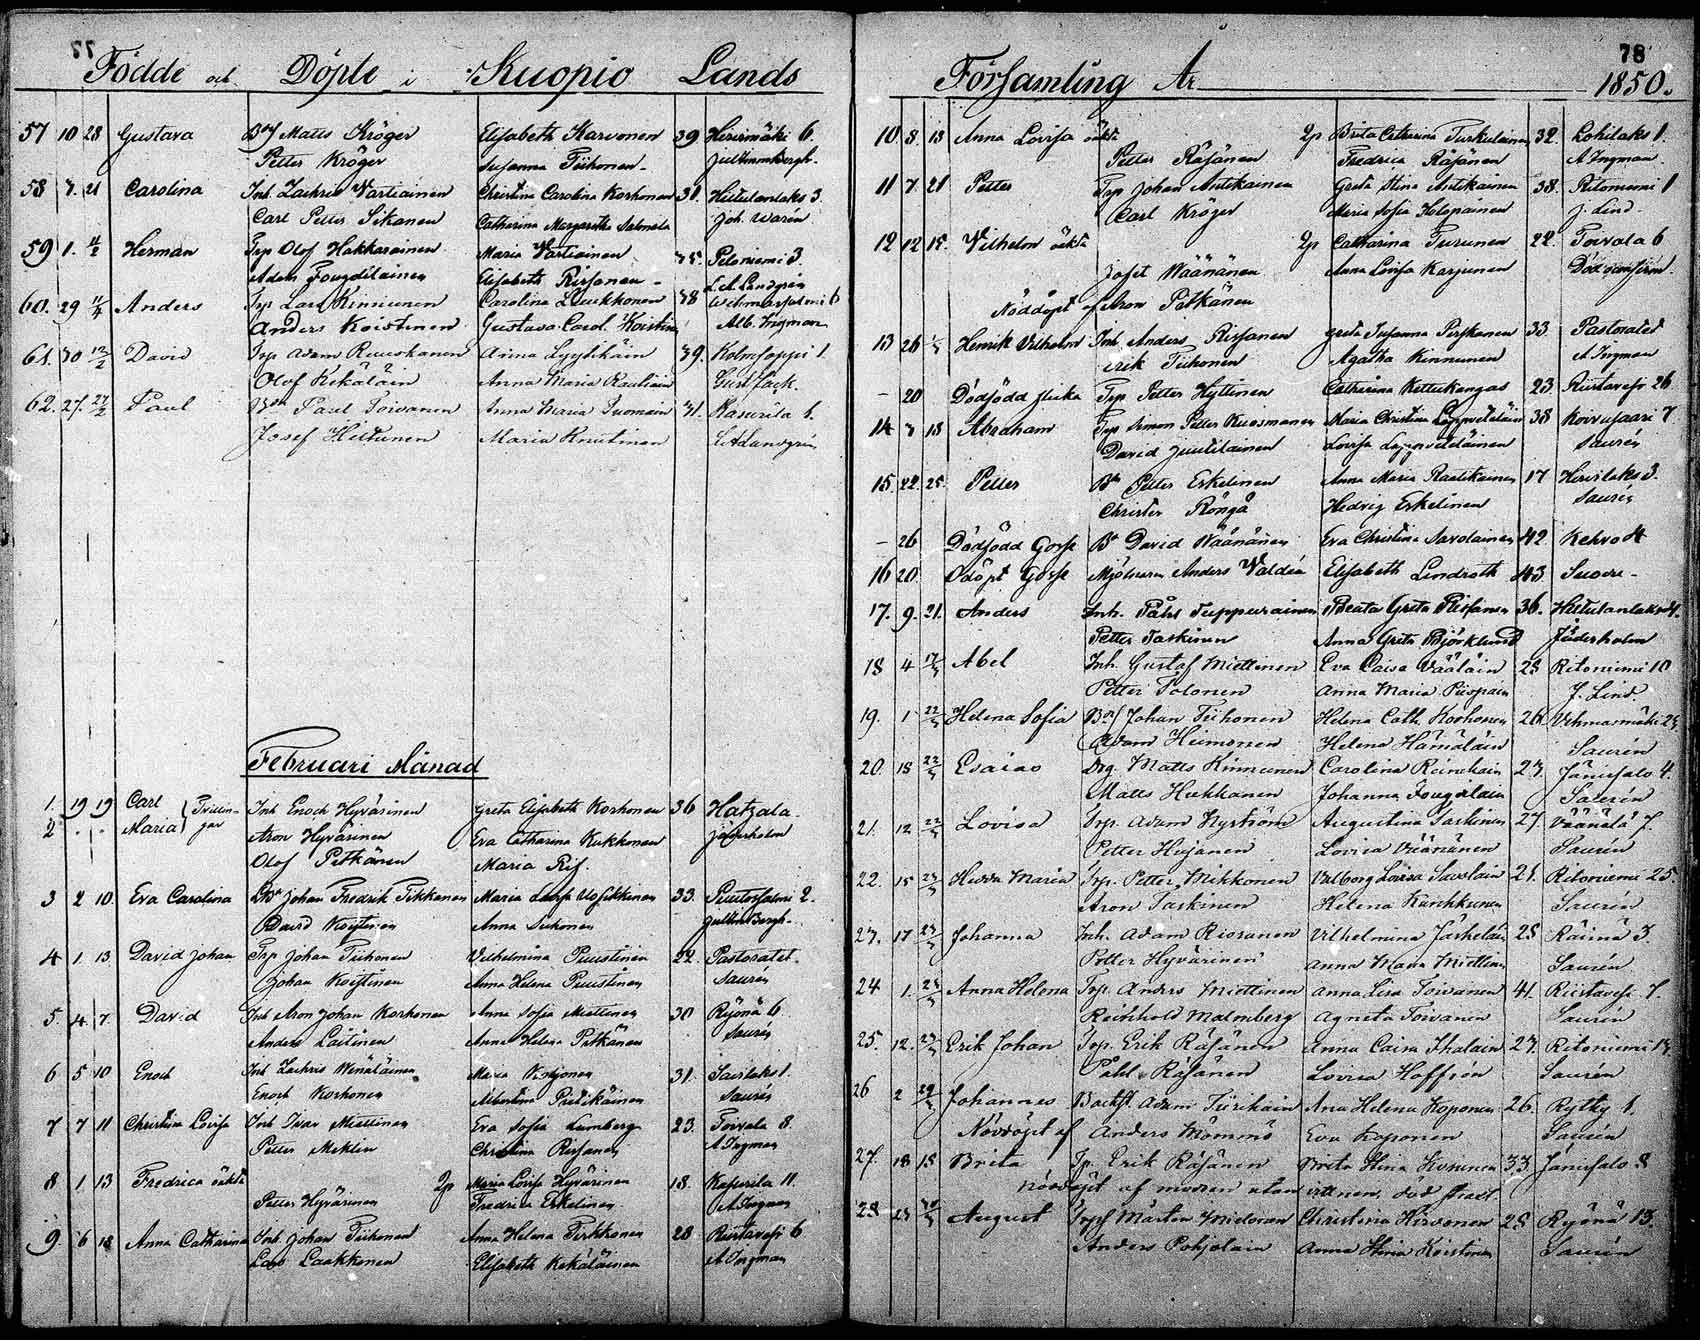 77
Födde och Döpte i Kuopio Lands
57 10 28 Gustava Matts Kröger Elisabeth Karvonen 39 Hirvimäki 6.
Petter Kröger Susanna Tiihonen
58 7. 21 Carolina Inh Zachris Vartiainen Christina Carolina Korhonen 31. Hiltulanlaks 3.
Carl Petter Sikanen Catharina Margaretha Joh. Warén
59 1. 4/2 Herman Trp Olof Hakkarainen Maria Vartiainen 35. Peloniemi 3.
Adam Fougdilainen Elisabeth Rissanen
60. 29 11/4 Anders Trp Lars Kinnunen Carolina Luukkonen 38 6
Anders Koistinen Gustava Carol. Koistin Alb. Ingman
61. 30 12/2 David Trp Adam Ruuskanen Anna Lyytikäin 39. 1.
Olof Kekäläin Anna Maria Rautiain
62. 27. 27/2 Paul Paul Toivanen Anna Maria Tuomain 31. Kasurila 1.
Josef Hiltunen Maria Knuutinen
Februari Månad
1. 19 19 Carl Tvillin- Inh Enoch Hyvärinen Greta Elisabeth Korhonen 36 Hatzala
2 Maria gar Aron Hyvärinen Eva Catharina Kukkonen
Olof Pitkänen Maria Ris.
3 2 10. Eva Carolina Johan Fredrik Tikkanen Maria Lovisa 33. 2.
David Koistinen Anna
4 1 13 David Johan Trp Johan Tiihonen Vilhelmina Puustinen 22. Pastoratet
Johan Koistinen Anna Helena Puustinen Saurén
5. 4 7 David Inh Aron Johan Korhonen Anna Sofia Miettinen 30 Ryönä 6
Anders Laitinen Anna Helena Pitkänen Saurén
6 5 10 Enoch Inh Zachris Wänäläinen Maria 31. Savilaks 1.
Enoch Korhonen Albertina Saurén
7 7 11 Christina Lovisa Inh Ivar Miettinen Eva Sofia Lumberg 23. Toivala 8.
Petter Miklin Christina Rissanen A Ingman
8 1 13 Fredrica oäkta 2p Maria Lovisa Hyvärinen 18. Kasurila 11.
Petter Hyvärinen Fredrica Eskelinen A Ingman
9. 6 18 Anna Catharina Inh Johan Tiihonen Anna Helena Tirkkonen 28 Riistavesi 6
Lars Laakkonen Elisabeth Kekäläinen A Ingman
78
Församling År 1850.
10. 8. 13 Anna Lovisa oäkta 2p Brita Catharina Turkulainen 32. Lohilaks 1.
Petter Räsänen Fredrica Räsänen A Ingman
11 7 21 Petter Trp Johan Antikainen Greta Stina Antikainen 38. Ritoniemi 1
Carl Kröger Maria Sofia Holopainen J. Lind
12 12 15. Vilhelm oäkta 2p Catharina Turunen 22. Toivala 6
Josef Wäänänen Anna Lovisa Karjunen
Nöddöpt af Aron Pitkänen
13 26 Henrik Vilhelm Inh Anders Rissanen Greta Susanna Pirskanen 33 Pastoratet
Erik Tiihonen Agatha Kinnunen A Ingman
– 20 Dödfödd flicka Trp Petter Hyttinen Catharina Kettukangas 23 Riistavesi 26
14 7 13 Abraham Trp Simon Petter Kuosmanen Maria Christina Leppveteläin 38 Koivusaari 7
David Juutilainen Lovisa Leppvetelainen Saurén
15. 22. 25. Petter Petter Eskelinen Anna Maria Raatikainen 17 Hirvilaks 3.
Christer Röngå Hedvig Eskelinen Saurén
– 26 Dödfödd Gosse David Wäänänen Eva Christina Savolainen 42. Kehvo 4
16 20 Odöpt Gosse Mjölnaren Anders Valdén Elisabeth Lindroth 43
17. 9. 21. Anders Inh. Påhl Tuppurainen Beata Greta Rissanen 36. Hiltulanlaks 4.
Petter Taskinen Anna Greta Björklund Jäderholm
18 4 Abel Inh. Gustaf Miettinen Eva Caisa Väätäin 23 Ritoniemi 10
Petter Tolonen Anna Maria Piispain J. Lind
19. 1 Helena Sofia Johan Tiihonen Helena Cath. Korhonen 26. Vehmasmäki
Adam Heimonen Helena Hämäläin Saurén
20. 18 Esaias Drg. Matts Kinnunen Carolina Reinikain 27. Jänissalo 4.
Matts Hukkanen Johanna Fougdlain Saurén
21. 12 Lovisa Trp. Adam Nyström Augustina Taskinen 27. Väänälä 7.
Petter Hujanen Lovisa Väänänen Saurén
22. 15 Hedda Maria Trp. Petter Mikkonen Valborg Lovisa Savolain 21. Ritoniemi 25.
Aron Taskinen Helena Saurén
23. 17 Johanna Inh. Adam Rissanen Vilhelmina Jäskeläin 28 Räimä 3.
Petter Hyvärinen Anna Maria Miettin Saurén
24 1. Anna Helena Trp. Anders Miettinen Anna Lisa Toivanen 41. Riistavesi 7.
Reinhold Malmberg Agneta Toivanen Saurén
25. 12. Erik Johan Trp. Erik Räsänen Anna Caisa Ihalain 27. Ritoniemi
Påhl Räsänen Lovisa Hoffrén Saurén
26 2 Johannes Adam Tiirikain Ana Helena Koponen 26. Rytky 1.
Nöddöpt af Anders Mömmö Eva Koponen Saurén
27. 18 18 Brita Tp. Erik Räsänen Brita Stina 33. Jänissalo 8
nöddöpt af modren utan vittnen, död strax.
28 23 August Mårten Christina Hirvonen 28 Ryönä 13.
Anders Pohjolain Anna Stina Koistinen Saurén